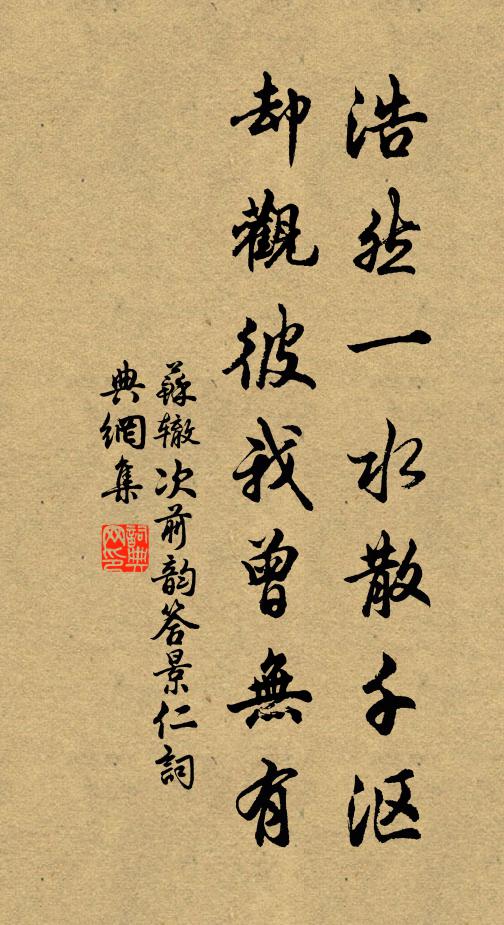 浩然一水散千沤
却觀彼我曾無有
蘇辙次前韵答景仁詞
典網集
詞典網印